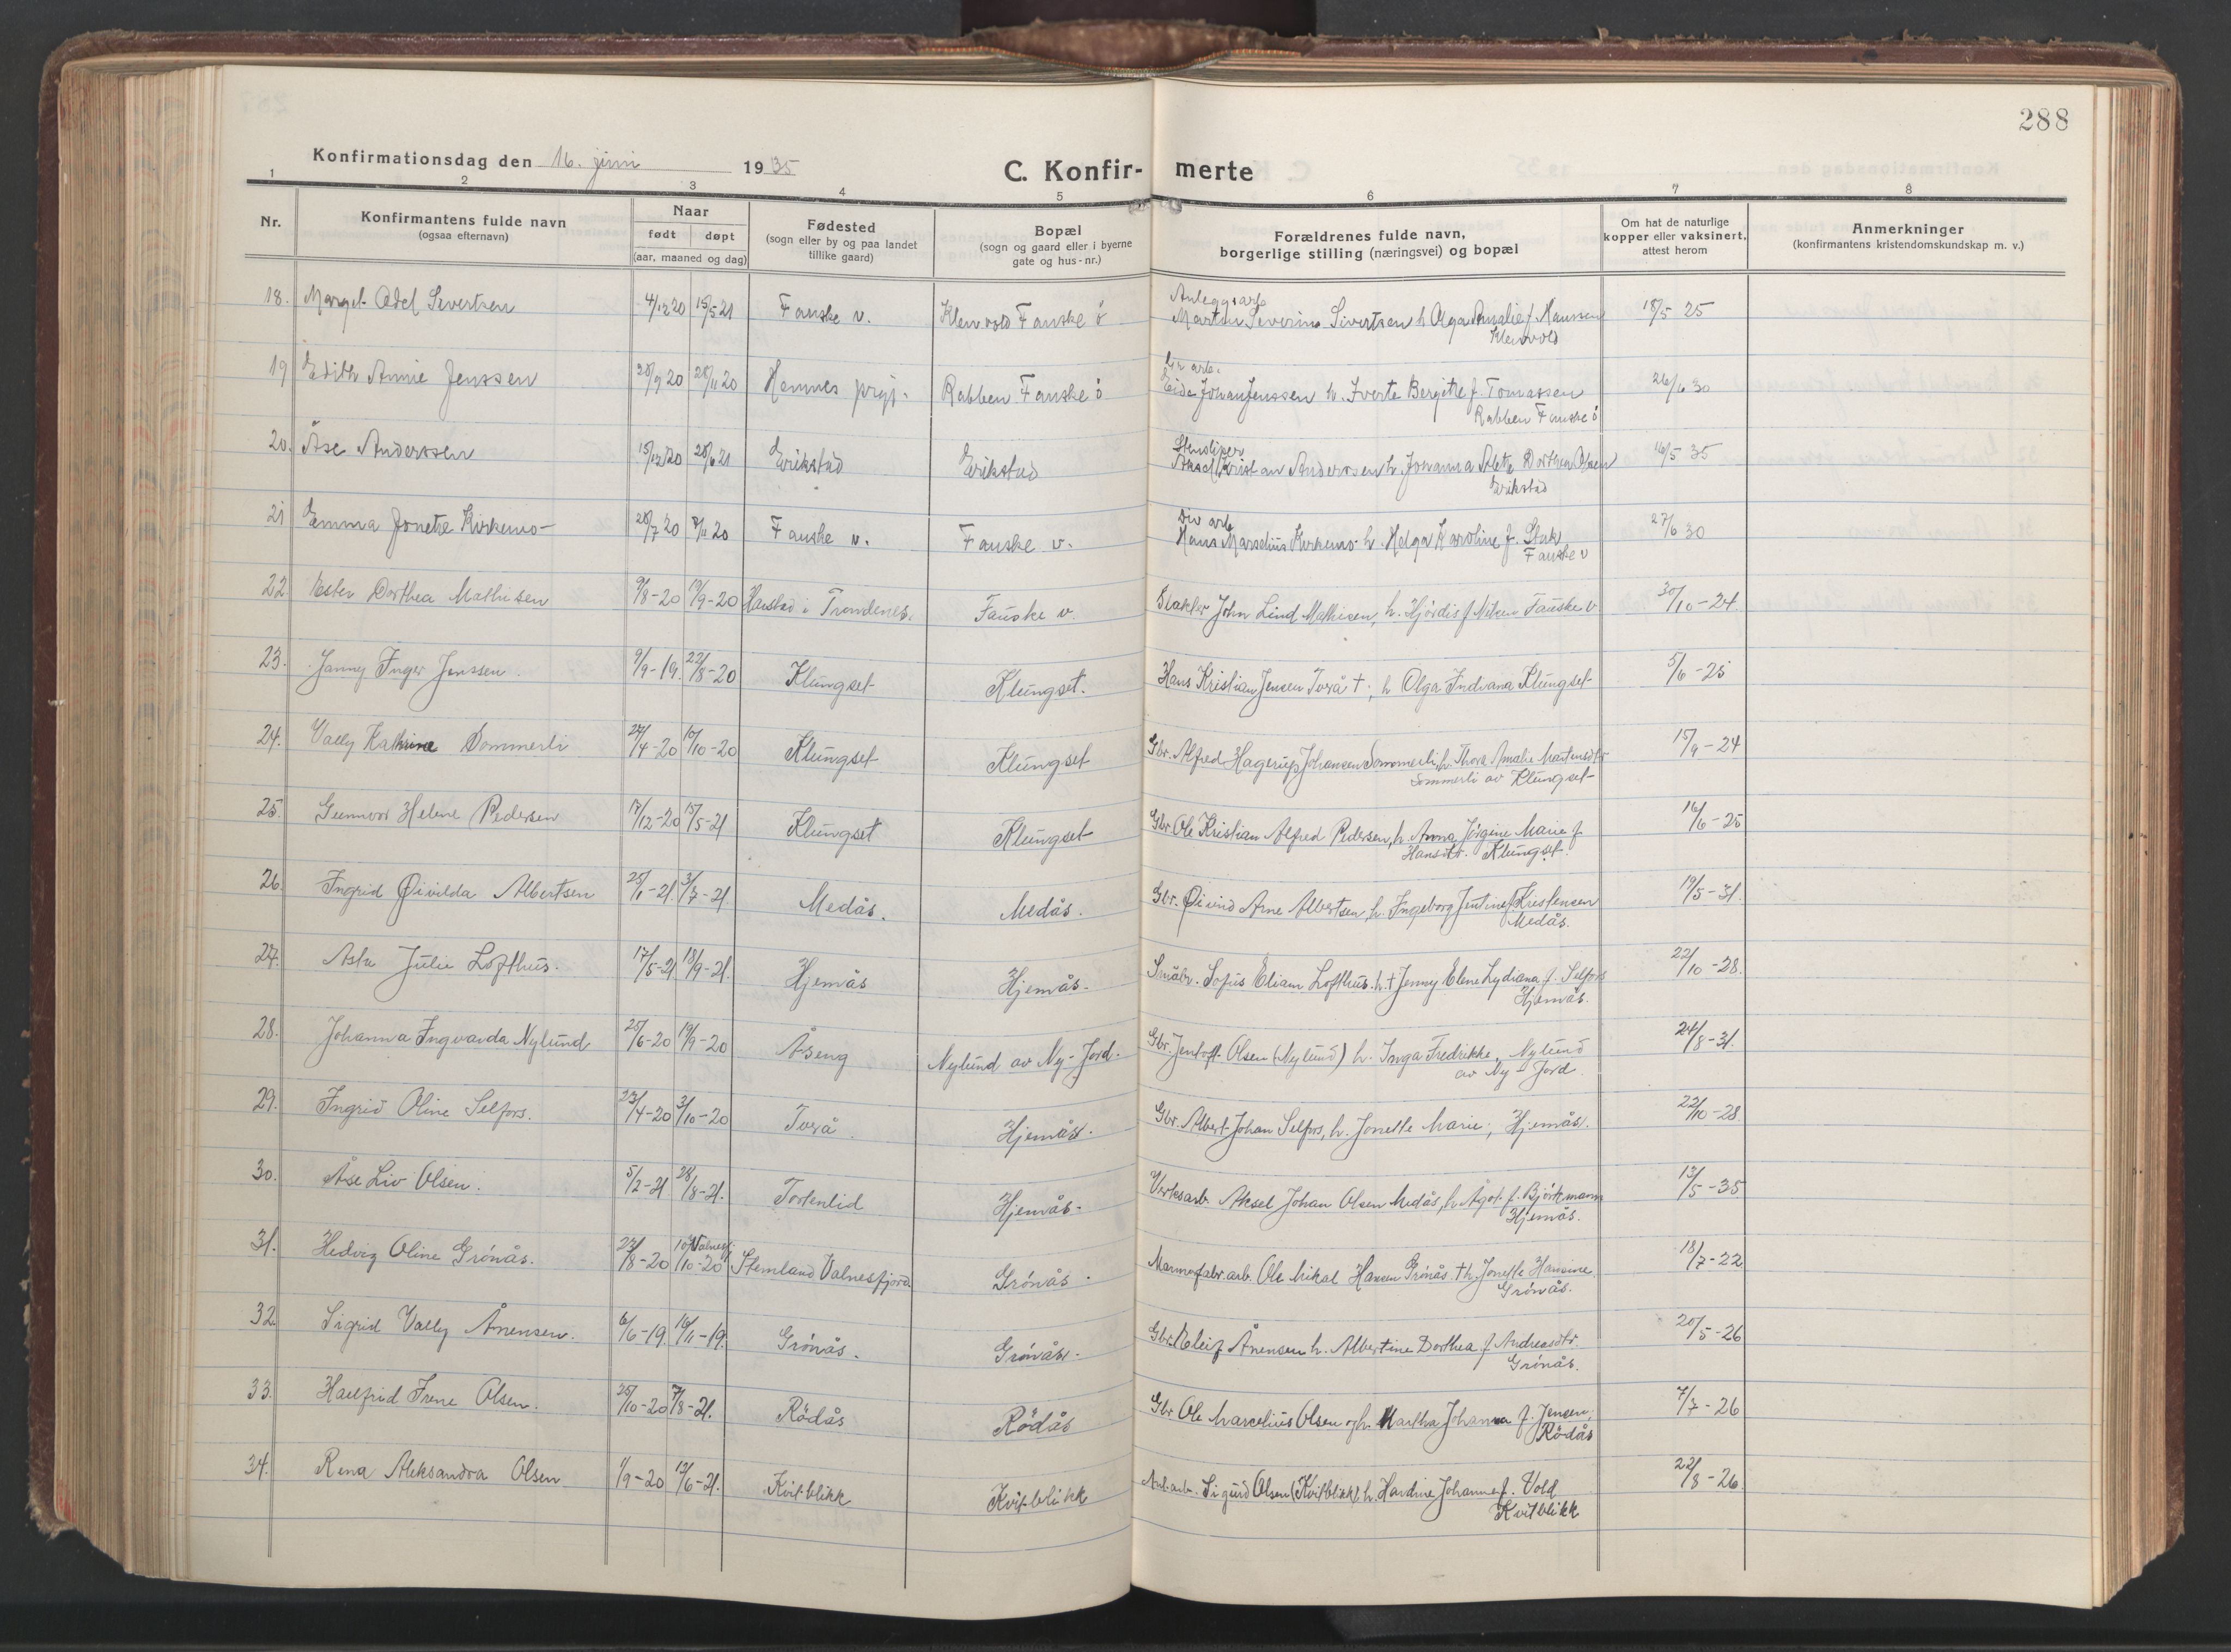 288
Konfirmationsdag den 16. juni 1935
C. Konfir- merte
1 2 3 4 5 6 7 8
Nr.
Konfirmantens fulde navn
(ogsaa efternavn)
Naar
født døpt
(aar, maaned og dag)
Fødested
(sogn eller by og paa landet
tillike gaard)
Bopæl
(sogn og gaard eller i byerne
gate og hus-nr.)
Forældrenes fulde navn,
borgerlige stilling (næringsvei) og bopæl
Om hat de naturlige
kopper eller vaksinert,
attest herom
Anmerkninger
(konfirmantens kristendomskundskap m. v.)
Anleggsarb
18. Margit Adel Sivertsen 4/12 20 15/5 21 Fauske v. Klenvold Fauske ö Martin Severin Sivertsen h Olga Amalie f Hanssen 18/5 25
Klenvold
19 Edith Annie Jenssen 28/9 20 28/11 20 Hemnes prgj. Rabben Fauske ö Johan Jenssen h. Iverte Bergitte f. Tomassen 26/6 30
Rabben Fauske ö
20. Åse Anderssen 15/12 20 26/6 21 Erikstad Erikstad Aksel Kristian Anderssen h. Johanna Alete Dorthea Olsen 16/5 35
Erikstad
Div arb
21 Emma Jonette Kirkemo 28/7 20 7/11 20 Fauske v. Fauske v. Hans Marselius Kirkemo h. Helga Karoline f. 27/6 30
Fauske v
22. Ester Dorthea Mathisen 9/8-20 19/9-20 Harstad i Trondenes. Fauske v. John Lind Mathisen, h. Hjördis f Nilsen Fauske v 30/10-24.
23. Janny Inger Jenssen. 9/9-19. 22/8-20 Klungset Klungset. Hans Kristian Jensen Tverå †, h Olga Indiana Klungset 5/6-25
24. Vally Kathrine Sommerli 24/4-20 10/10-20 Klungset Klungset Gbr. Alfred Hagerup Johansen Sommerli, h. Thora Amalie Martensdtr 15/9-24
Sommerli av Klungset
25. Gunnvor Helene Pedersen 17/12-20 15/5-21 Klungset Klungset Gbr. Ole Kristian Alfred Pedersen, h. Anna Jörgine Marie f. 16/6-25
Hansdtr. Klungset.
26. Ingrid Øivilda Albertsen 25/1-21. 3/7-21. Medås. Medås. Gbr. Øivind Arne Albertsen, h. Ingeborg Jentine f Kristensen 19/5-31.
Medås.
27. Asta Julie Lofthus. 17/5-21 18/9-21. Hjemås Hjemås. Småbr. Sofus Eliam Lofthus. h. † Jenny Elene Lydiana f. Selfors 22/10-28.
Hjemås.
28. Johanna Ingvarda Nylund 25/6-20 19/9-20 Åseng Nylund av Ny-Jord. Gbr. Jentoft Olsen (Nylund) h. Inga Fredrikke, Nylund 24/8-31.
av Ny-Jord.
29. Ingrid Oline Selfors. 23/4-20 3/10-20 Tverå. Hjemås. Gbr. Albert Johan Selfors, h. Jonette Marie, Hjemås. 22/10-28
30. Åse Liv Olsen. 5/2-21 28/8-21. Tortenlid Hjemås. Verksarb. Aksel Johan Olsen Medås, h. Ågot f. Björkmann 13/5-35
Hjemås.
31. Hedvig Oline Grönås. 22/8-20 10/10-20 Valnesfj. Stemland Valnesfjord Grönås. Marmorfabr.arb. Ole Mikal Hansen Grönås. † h. Jonette Hansine. 18/7-22
Grönås.
32. Sigrid Vally Ånensen. 6/6-19. 16/11-19. Grönås. Grönås. Gbr. Eleif Ånensen h. Albertine Dorthea f Andreasdtr. 20/5-26
Grönås.
33. Hallfrid Irene Olsen. 25/10-20 7/8-21. Rödås Rödås Gbr Ole Marcelius Olsen og h. Martha Johanna f. Jensen. 7/7-26
Rödås
34. Rena Aleksandra Olsen 1/9-20 12/6-21. Kvitblikk Kvitblikk Anl.arb. Sigurd Olsen (Kvitblikk) h. Hardine Johanne f. Vold 22/8-26.
Kvitblikk